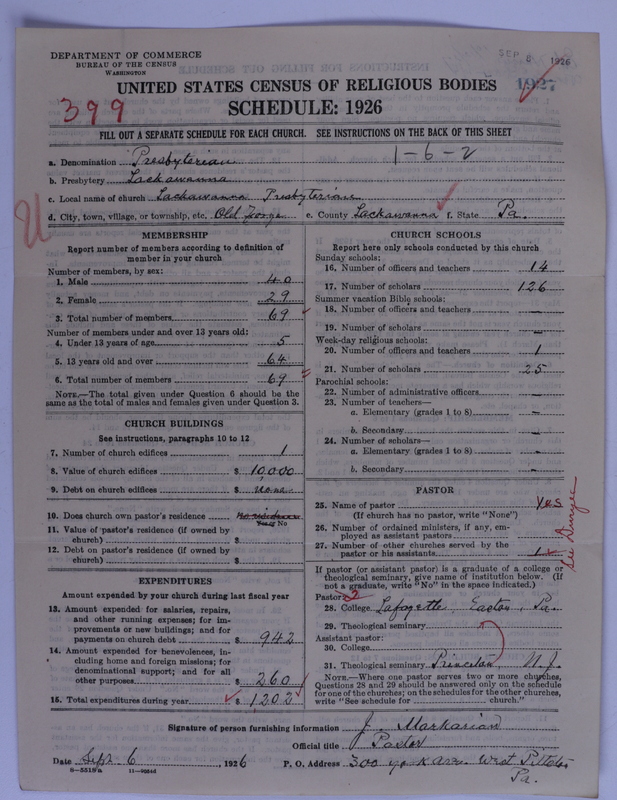 DEPARTMENT OF COMMERCE
BUREAU OF THE CENSUS
WASHINGTON
SEP 8 1926
1927
UNITED STATES CENSUS OF RELIGIOUS BODIES
399
SCHEDULE: 1926
FILL OUT A SEPARATE SCHEDULE FOR EACH CHURCH. SEE INSTRUCTIONS ON THE BACK OF THIS SHEET
a. Denomination Presbyterian 1-6-2
b. Presbytery Lackawanna
c. Local name of church Lackawanna Presbyterian
d. City, town, village, or township, etc. Old Forge e. County Lackawanna f. State Pa.
MEMBERSHIP
Report number of members according to definition of
member in your church
Number of members, by sex:
1. Male 40
2. Female 29
3. Total number of members 69
Number of members under and over 13 years old:
4. Under 13 years of age 5
5. 13 years old and over 64
6. Total number of members 69
NOTE.—The total given under Question 6 should be
same as the total of males and females given under Question 3.
CHURCH BUILDINGS
See instructions, paragraphs 10 to 12
7. Number of church edifices 1
8. Value of church edifices $ 10,000
9. Debt on church edifices $ None
10. Does church own pastor's residence No
11. Value of pastor's residence (if owned by
church) $
12. Debt on pastor's residence (if owned by
church) $
EXPENDITURES
Amount expended by your church during last fiscal year
13. Amount expended for salaries, repairs,
and other running expenses; for im-
provements or new buildings; and for
payments on church debt $ 942
14. Amount expended for benevolences, in-
cluding home and foreign missions; for
denominational support; and for all
other purposes $ 260
15. Total expenditures during year $ 1202
CHURCH SCHOOLS
Report here only schools conducted by this church
Sunday schools:
16. Number of officers and teachers 14
17. Number of scholars 126
Summer vacation Bible schools:
18. Number of officers and teachers —
19. Number of scholars —
Week-day religious schools:
20. Number of officers and teachers 1
21. Number of scholars 25
Parochial schools:
22. Number of administrative officers —
23. Number of teachers—
a. Elementary (grades 1 to 8) —
b. Secondary —
24. Number of scholars—
a. Elementary (grades 1 to 8) —
b. Secondary —
PASTOR
25. Name of pastor Yes
(If church has no pastor, write "None")
26. Number of ordained ministers, if any, em-
ployed as assistant pastors
27. Number of other churches served by the
pastor or his assistants 1
See Duryea
If pastor (or assistant pastor) is a graduate of a college or
theological seminary, give name of institution below. (If
not a graduate, write "No" in the space indicated.)
Pastor: 2
28. College Lafayette Easton, Pa.
29. Theological seminary
Assistant pastor:
30. College
31. Theological seminary Princeton N.J.
NOTE.—Where one pastor serves two or more churches,
Questions 28 and 29 should be answered only on the schedule
for one of the churches; on the schedules for the other churches,
write "See schedule for church."
Signature of person furnishing information J. Markarian
Official title Pastor
Date Sept 6, 1926 P. O. Address 300 York Ave. West Pittston
Pa.
8-5518a 11-9554d